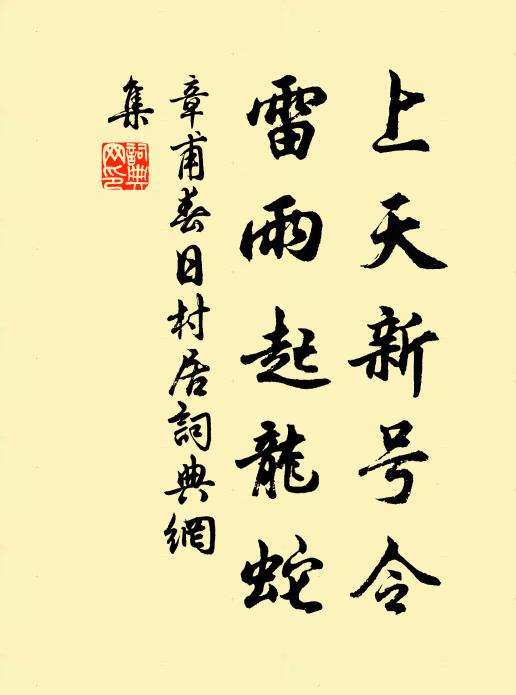 上天新号令
雷雨起龍蛇
章甫春日村居詞典網
集
詞典
网印